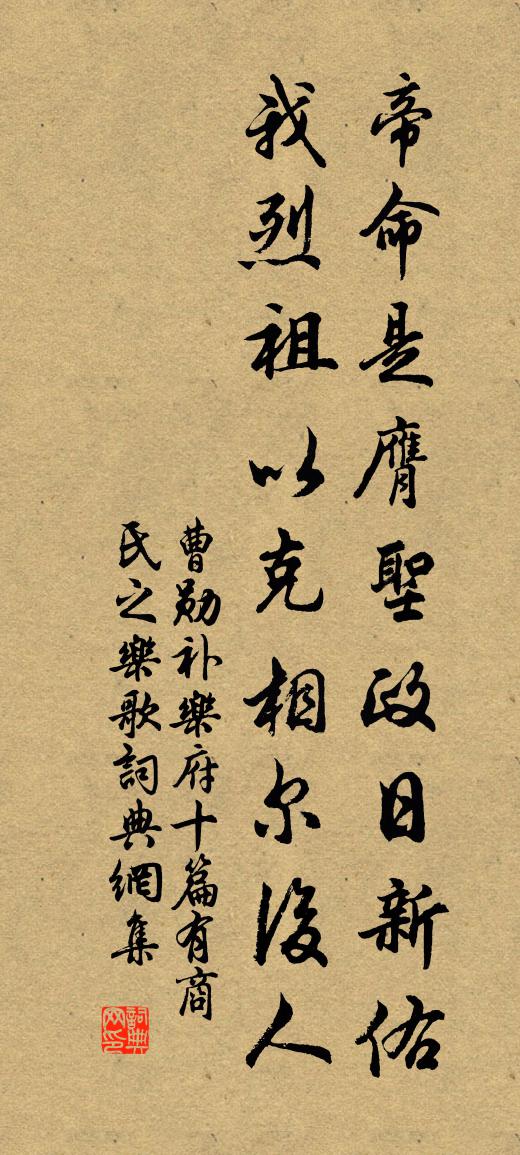 帝命是膺聖政日新佑
我烈祖以克相尔後人
曹勛补樂府十篇有商
氏之樂歌詞典網集
詞典网印